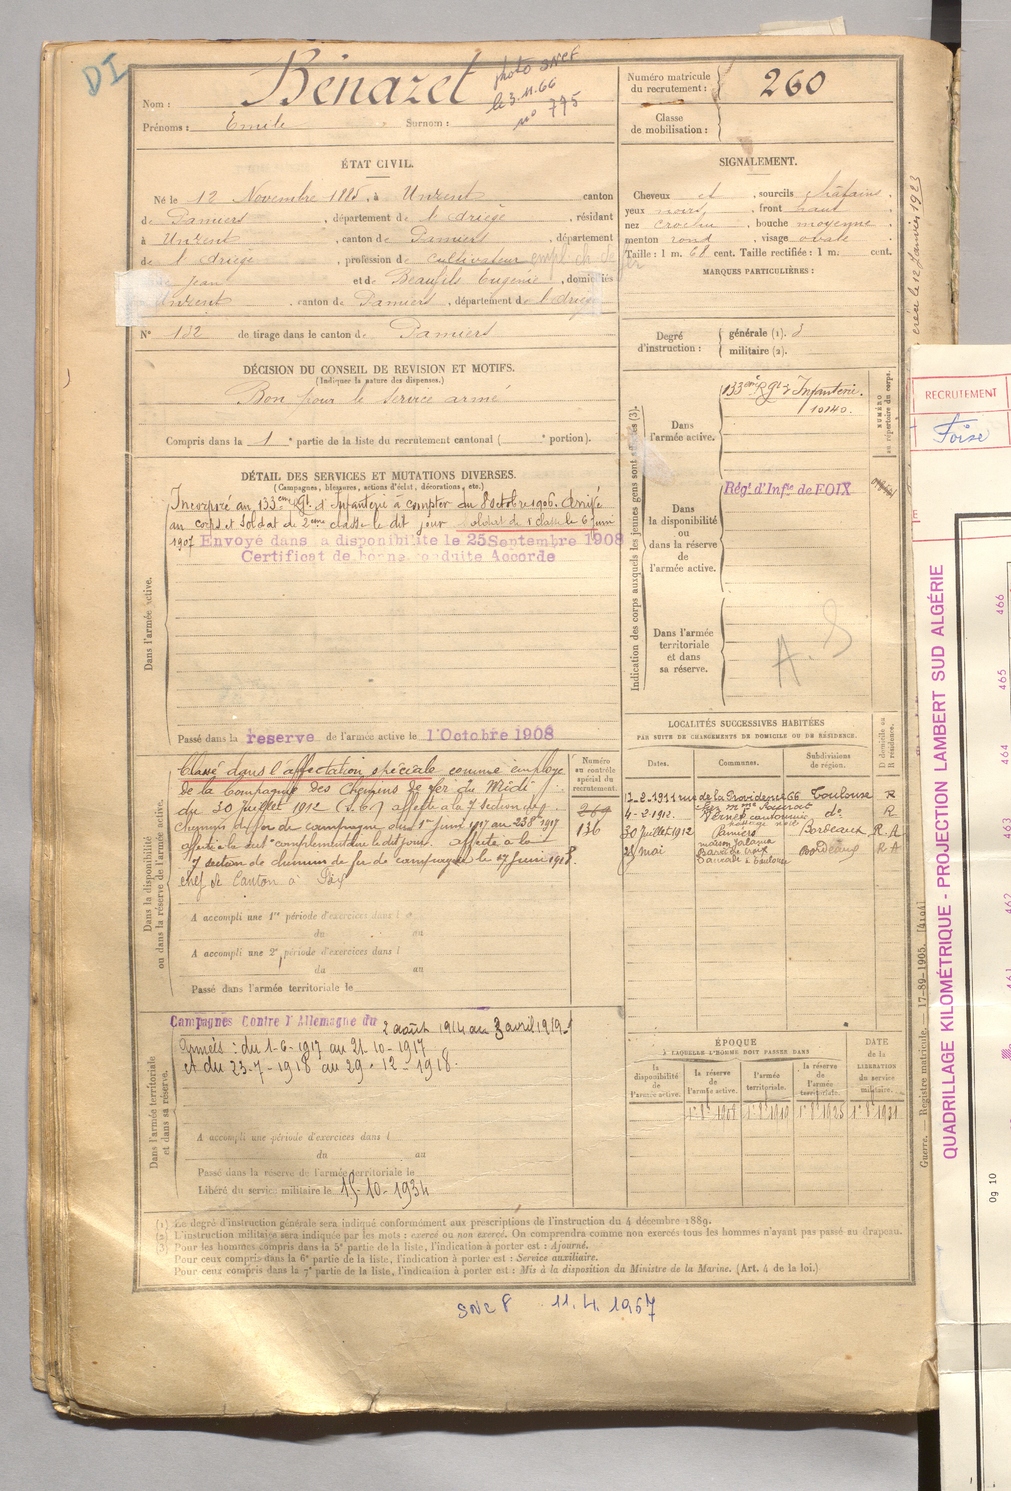 DI
Nom : Bénazet
photo SNCF
le 3.11.66
no 775
Prénoms : Emile Surnom :
Numéro matricule du recrutement : 260
Classe de mobilisation :
ÉTAT CIVIL.
Né le 12 Novembre 1885, à Unzent canton
de Pamiers, département de l'Ariège, résidant
à Unzent, canton de Pamiers, département
de l'Ariège, profession de cultivateur empl ch de fer
Jean et de Beaufils Eugénie, domiciliés
Unzent, canton de Pamiers, département de l'Ariège
N° 132 de tirage dans le canton de Pamiers
SIGNALEMENT.
Cheveux et , sourcils châtains.
yeux noirs, , front haut
nez crochu , bouche moyenne
menton rond , visage ovale
Taille : 1 m. 68 cent. Taille rectifiée : 1 m. cent.
MARQUES PARTICULIÈRES :
Degré d'instruction : générale (1). 3
militaire (2).
DÉCISION DU CONSEIL DE REVISION ET MOTIFS.
(Indiquer la nature des dispenses.)
Bon pour le service armé
Compris dans la 1e partie de la liste du recrutement cantonal ( e portion).
DÉTAIL DES SERVICES ET MUTATIONS DIVERSES.
(Campagnes, blessures, actions d'éclat, décorations, etc.)
Dans l'armée active.
Incorporé au 133eme Rgt d'Infanterie à compter du 8 octobre 1906. Arrivé
au corps et soldat de 2eme classe le dit jour soldat de 1 classe le 6 juin
1907 Envoyé dans la disponibilité le 25 Septembre 1908
Certificat de bonne conduite Accordé
Passé dans la réserve de l'armée active le 1 Octobre 1908
Indication des corps auxquels les jeunes gens sont affectés (3).
Dans l'armée active.
133eme Rgt d'Infanterie.
10140.
NUMÉRO au répertoire du corps.
Dans la disponibilité ou dans la réserve de l'armée active.
Régt d'Infie de FOIX
Dans l'armée territoriale et dans sa réserve.
A. S
Dans la disponibilité ou dans la réserve de l'armée active.
Classé dans l'affectation spéciale comme employé
de la Compagnie des Chemins de fer du Midi
du 30 Juillet 1912 (S.C.) affecté à la 7 section de
Chemins de fer de campagne du 1er juin 1917 au 23 8bre 1917
affecté à la sect° complémentaire le dit jour. affecté à la
7 section de chemin de fer de campagne le 17 juin 1918.
chef de Canton à
Numéro au contrôle spécial du recrutement.
264
136
A accompli une 1re période d'exercices dans l
du au
A accompli une 2e période d'exercices dans l
du au
Passé dans l'armée territoriale le
LOCALITÉS SUCCESSIVES HABITÉES
PAR SUITE DE CHANGEMENTS DE DOMICILE OU DE RÉSIDENCE.
Dates. Communes. Subdivisions de région. D domicile ou R résidence.
17-2-1911 rue de la Providence 66 Toulouse R
4-2-1912. Vernet cantonnier do R
30 Juillet 1912 Pamiers Bordeaux R.A
maison Jalama
mai Bordeaux R A
Dans l'armée territoriale et dans sa réserve.
Campagnes Contre l'Allemagne du 2 août 1914 au 3 avril 1919
Armées : du 1-6-1917 au 21-10-1917
et du 23-7-1918 au 29-12-1918.
A accompli une période d'exercices dans l
du au
Passé dans la réserve de l'armée territoriale le
Libéré du service militaire le 15-10-1934
ÉPOQUE
À LAQUELLE L'HOMME DOIT PASSER DANS
la disponibilité de l'armée active.
la réserve de l'armée active.
l'armée territoriale.
la réserve de l'armée territoriale.
DATE de la LIBÉRATION du service militaire.
1 8bre 1908 1 8bre 1919 1 8bre 1925 1 8bre 1931
(1) Le degré d'instruction générale sera indiqué conformément aux prescriptions de l'instruction du 4 décembre 1889.
(2) L'instruction militaire sera indiquée par les mots : exercé ou non exercé. On comprendra comme non exercés tous les hommes n'ayant pas passé au drapeau.
(3) Pour les hommes compris dans la 5e partie de la liste, l'indication à porter est : Ajourné.
Pour ceux compris dans la 6e partie de la liste, l'indication à porter est : Service auxiliaire.
Pour ceux compris dans la 7e partie de la liste, l'indication à porter est : Mis à la disposition du Ministre de la Marine. (Art. 4 de la loi.)
SNCF 11.4.1967
Guerre. — Registre matricule. — 17-89-1905. [4194]
créée le 12 Janvier 1923
RECRUTEMENT
Foix
QUADRILLAGE KILOMÉTRIQUE - PROJECTION LAMBERT SUD ALGÉRIE
466
465
464
463
462
461
0g 10